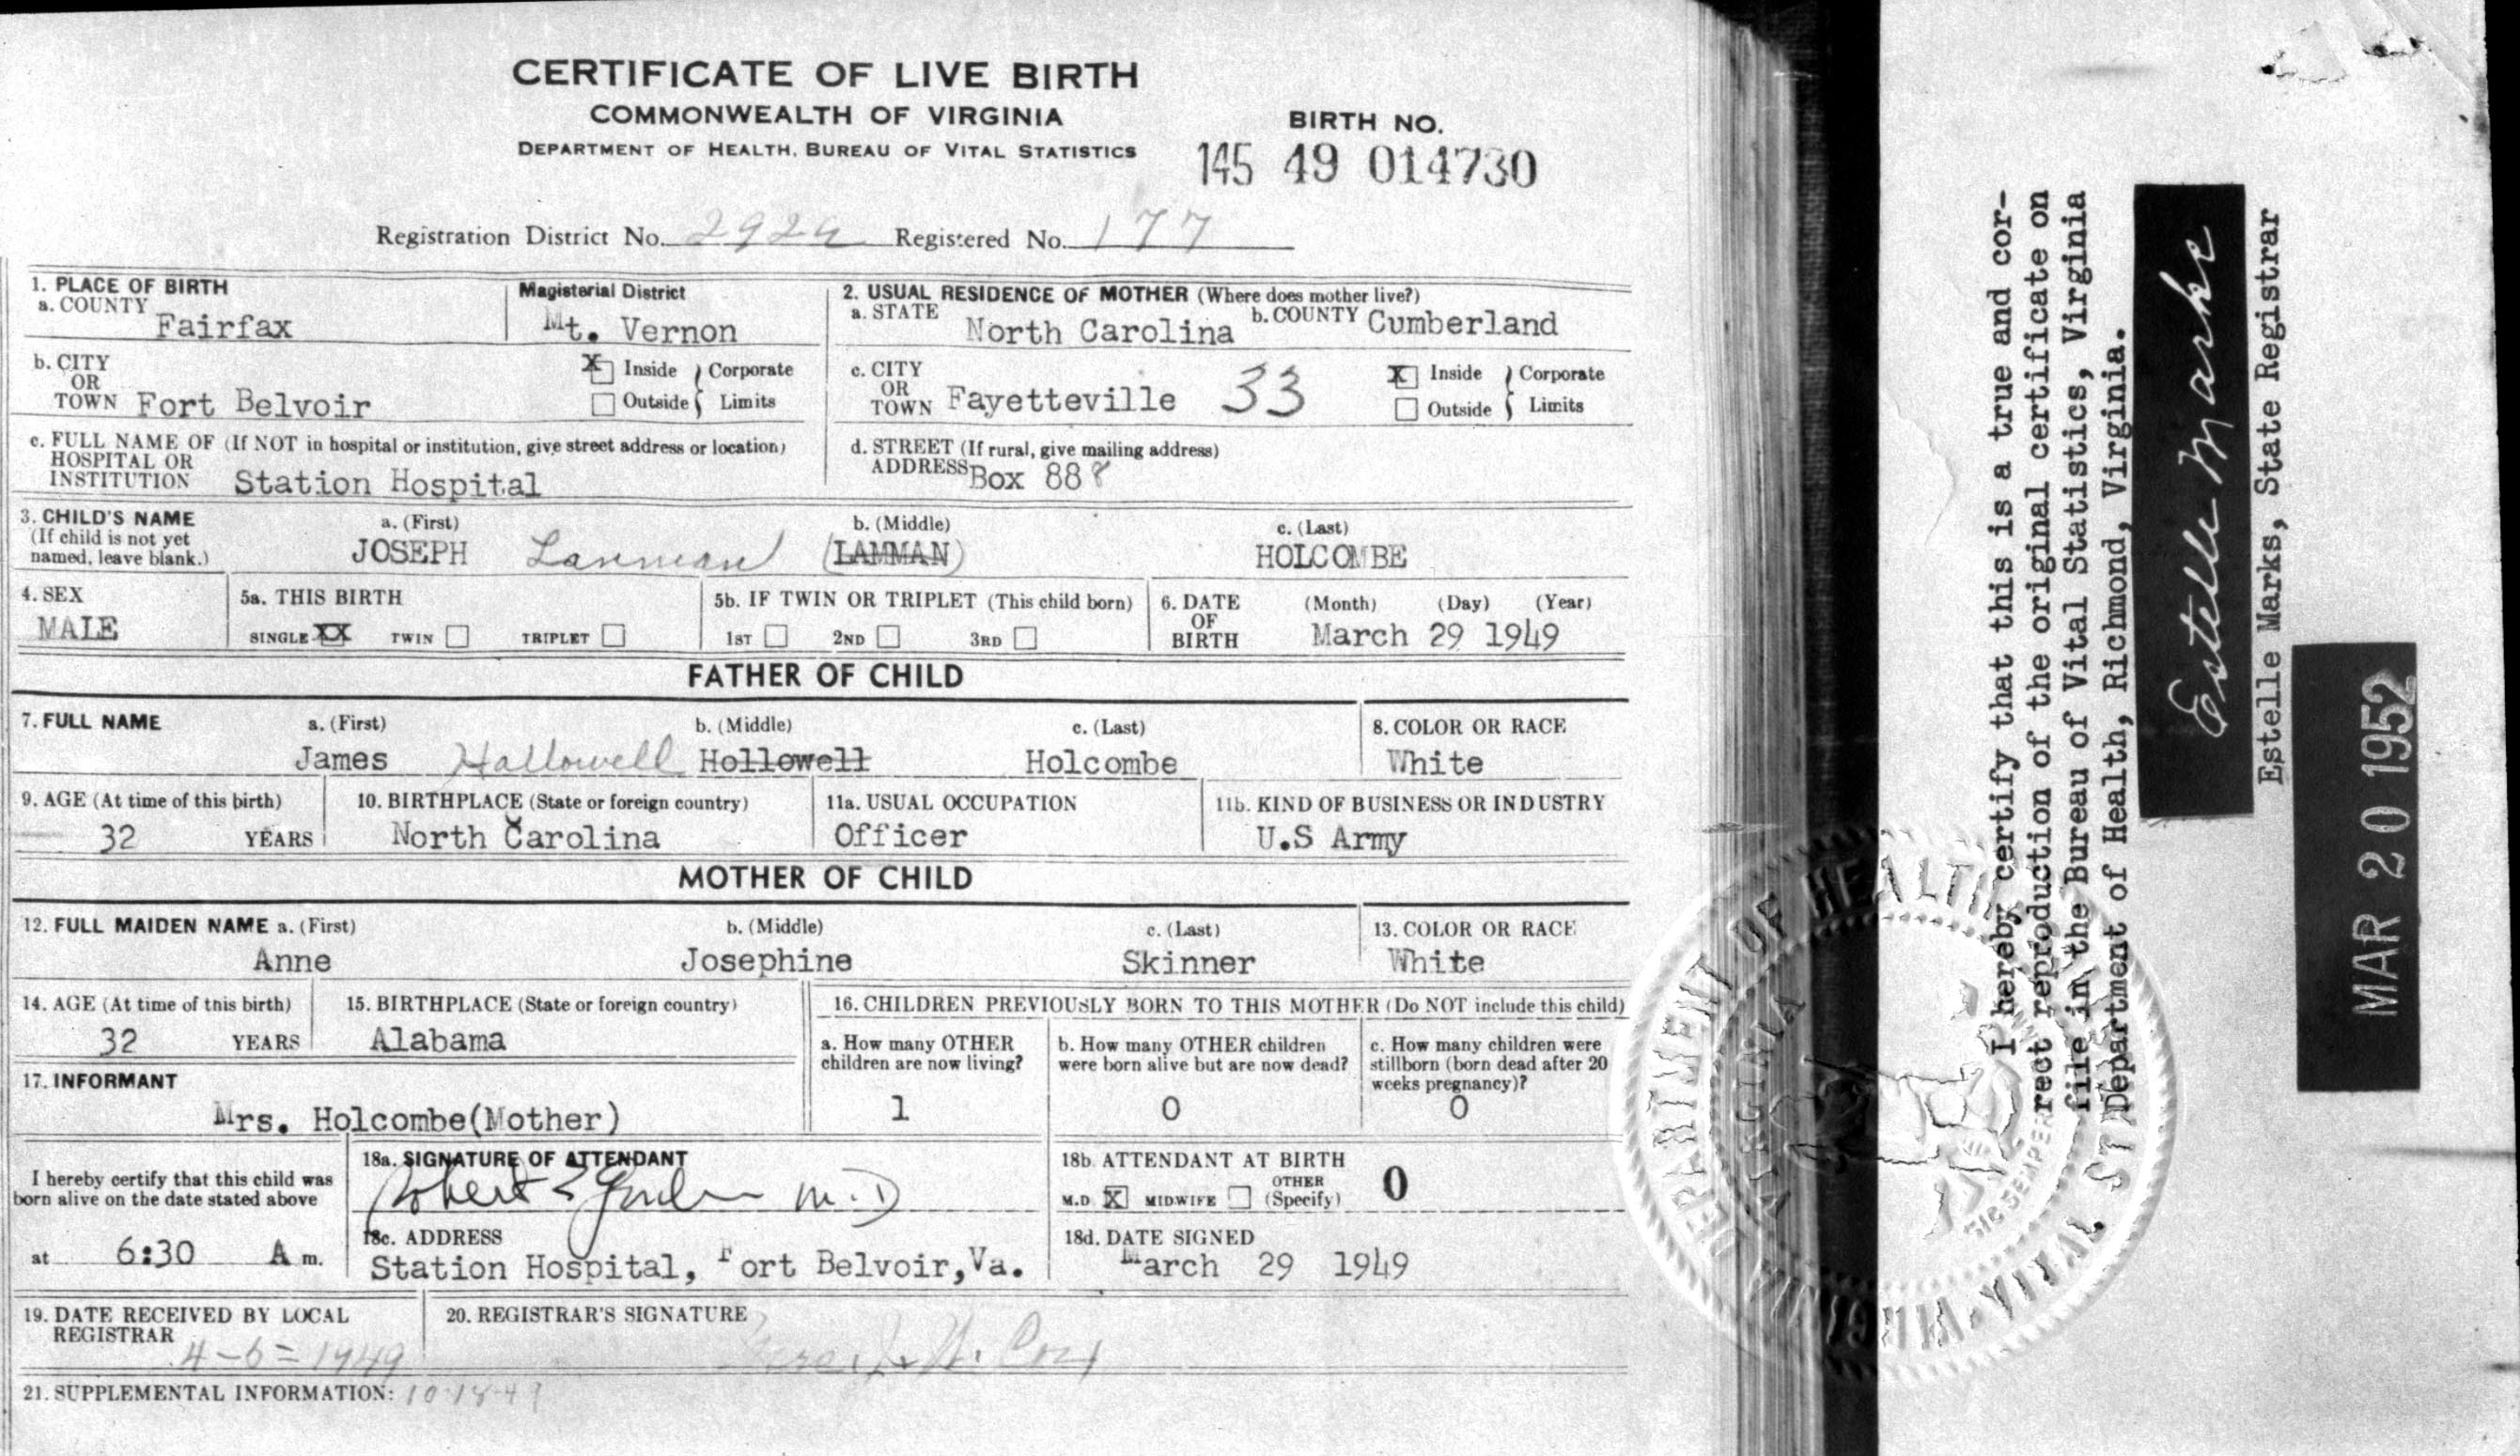 CERTIFICATE OF LIVE BIRTH
COMMONWEALTH OF VIRGINIA
DEPARTMENT OF HEALTH, BUREAU OF VITAL STATISTICS
BIRTH NO.
145 49 014730
Registration District No. 292a Registered No. 177
1. PLACE OF BIRTH
a. COUNTY Fairfax
Magisterial District
Mt. Vernon
2. USUAL RESIDENCE OF MOTHER (Where does mother live?)
a. STATE North Carolina b. COUNTY Cumberland
b. CITY OR TOWN Fort Belvoir
X Inside Outside } Corporate Limits
c. CITY OR TOWN Fayetteville 33
X Inside Outside } Corporate Limits
c. FULL NAME OF (If NOT in hospital or institution, give street address or location)
HOSPITAL OR
INSTITUTION Station Hospital
d. STREET (If rural, give mailing address)
ADDRESS Box 888
3. CHILD'S NAME a. (First) b. (Middle) c. (Last)
(If child is not yet
named, leave blank.) JOSEPH Lanman (LAMMAN) HOLCOMBE
4. SEX
MALE
5a. THIS BIRTH
SINGLE XX TWIN TRIPLET
5b. IF TWIN OR TRIPLET (This child born)
1ST 2ND 3RD
6. DATE OF BIRTH (Month) (Day) (Year)
March 29 1949
FATHER OF CHILD
7. FULL NAME a. (First) b. (Middle) c. (Last)
James Hallowell Hollowell Holcombe
8. COLOR OR RACE
White
9. AGE (At time of this birth)
32 YEARS
10. BIRTHPLACE (State or foreign country)
North Carolina
11a. USUAL OCCUPATION
Officer
11b. KIND OF BUSINESS OR INDUSTRY
U.S Army
MOTHER OF CHILD
12. FULL MAIDEN NAME a. (First) b. (Middle) c. (Last)
Anne Josephine Skinner
13. COLOR OR RACE
White
14. AGE (At time of this birth)
32 YEARS
15. BIRTHPLACE (State or foreign country)
Alabama
16. CHILDREN PREVIOUSLY BORN TO THIS MOTHER (Do NOT include this child)
a. How many OTHER
children are now living?
1
b. How many OTHER children
were born alive but are now dead?
0
c. How many children were
stillborn (born dead after 20
weeks pregnancy)?
0
17. INFORMANT
Mrs. Holcombe(Mother)
I hereby certify that this child was
born alive on the date stated above
at 6:30 A m.
18a. SIGNATURE OF ATTENDANT
Robert M.D
18b. ATTENDANT AT BIRTH
M.D X MIDWIFE OTHER (Specify) 0
18c. ADDRESS
Station Hospital, Fort Belvoir,Va.
18d. DATE SIGNED
March 29 1949
19. DATE RECEIVED BY LOCAL
REGISTRAR
4-6-1949
20. REGISTRAR'S SIGNATURE
21. SUPPLEMENTAL INFORMATION: 10-18-49
I hereby certify that this is a true and cor-
rect reproduction of the original certificate on
file in the Bureau of Vital Statistics, Virginia
Department of Health, Richmond, Virginia.
Estelle Marks
Estelle Marks, State Registrar
MAR 20 1952
DEPARTMENT OF HEALTH
VIRGINIA
VITAL
SIC SEMPER